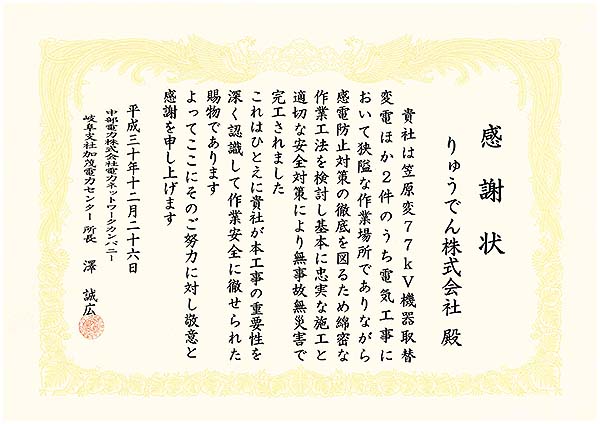 感謝状
りゅうでん株式会社 殿
貴社は笠原変77kV機器取替
変電ほか2件のうち電気工事に
おいて狭隘な作業場所でありながら
感電防止対策の徹底を図るため綿密な
作業工法を検討し基本に忠実な施工と
適切な安全対策により無事故無災害で
完工されました
これはひとえに貴社が本工事の重要性を
深く認識して作業安全に徹せられた
賜物であります
よってここにそのご努力に対し敬意と
感謝を申し上げます
平成三十年十二月二十六日
中部電力株式会社電力ネットワークカンパニー
岐阜支社加茂電力センター 所長 澤 誠広